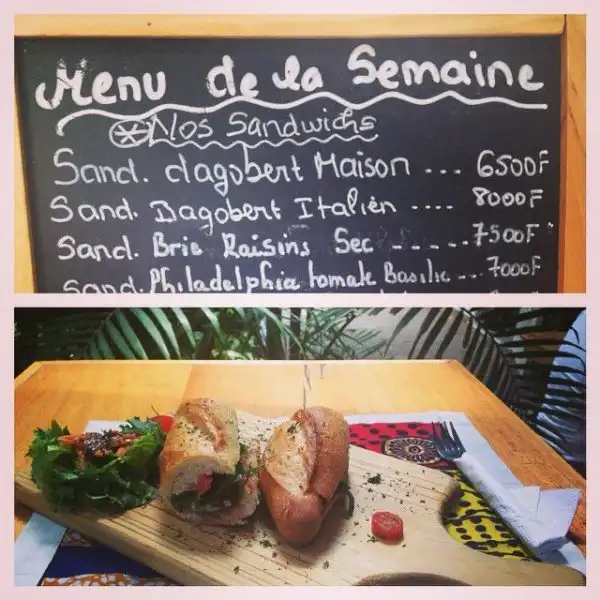 Menu de la Semaine
Nos Sandwichs
Sand. dagobert Maison ... 6500F
Sand. Dagobert Italien .... 8000F
Sand. Brie Raisins Sec ----- 7500F
Sand. Philadelphia tomate Basilic --- 7000F